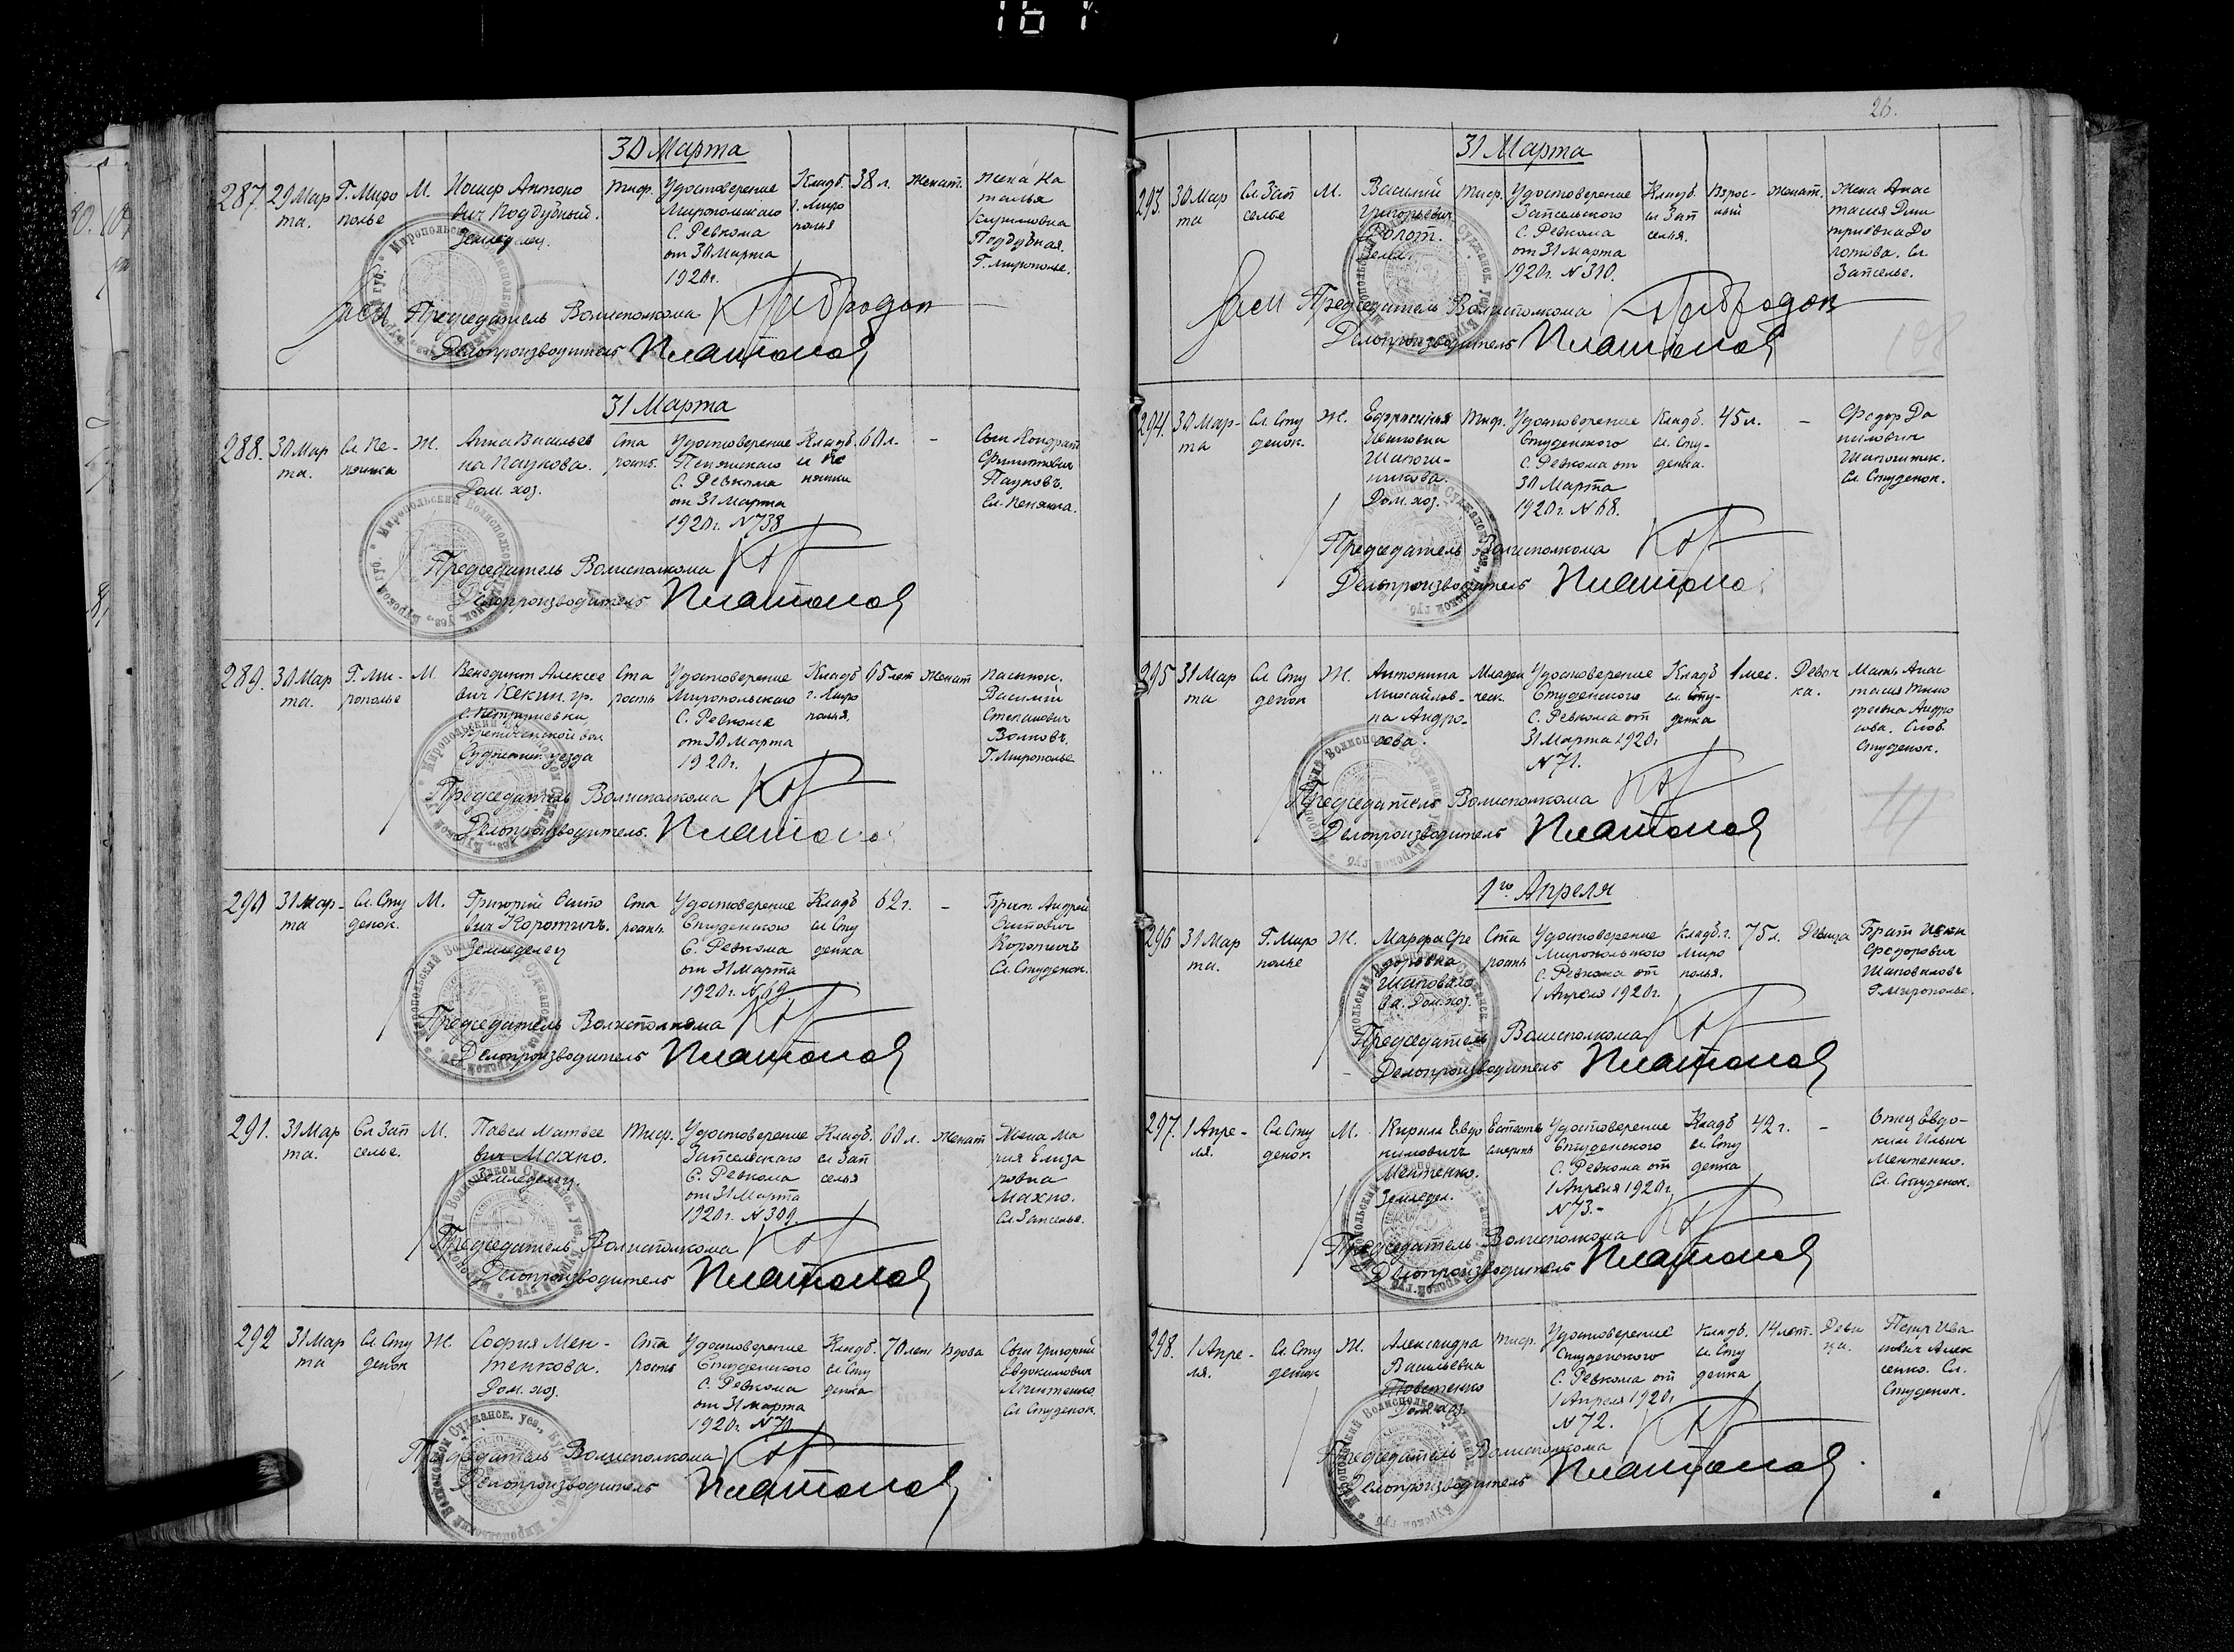 161
30 Марта
287. 29 Мар
та.
Г. Миро
полье
М.
Иосиф Антоно
вич Поддубный.
Земледелец.
тиф.
Удостоверение
Миропольского
С. Ревкома
от 30 Марта
1920 г.
Кладб.
г. Миро
полья
38 л.
женат.
жена На
талья
Поддубная.
Г. Мирополье.
Председатель Волисполкома
Делопроизводитель Платонов
31 Марта
288. 30 Мар
та.
Сл. Пе-
нянка
Ж.
Анна Василье
на Паукова.
Дом. хоз.
Ста
рость.
Удостоверение
Пенянского
С. Ревкома
от 31 Марта
1920 г. № 738
Кладб.
сл. Пе
нянки
60 л.
-
Сын Кондрат
Филиппович
Пауковъ.
Сл. Пенянка.
Председатель Волисполкома
Делопроизводитель Платонов
289. 30 Мар
та.
Г. Ми-
рополье
М.
Венедикт Алексее
вич Кекин. гр.
с. Петрушевки
вол
Суджанск. уезда
Ста
рость
Удостоверение
Миропольского
С. Ревкома
от 30 Марта
1920 г.
Кладб
г. Миро
полья.
65 лет
женат
Василий
Степанович
Волковъ.
Г. Мирополье
Председатель Волисполкома
Делопроизводитель. Платонов
290 31 Мар-
та
Сл. Сту
денок.
М.
Григорий Сито
вич Коротичъ.
Земледелец
Ста
рость
Удостоверение
Студенского
С. Ревкома
от 31 Марта
1920 г. № 69
Кладб
сл Сту
денка
62 г.
-
Брат. Андрей
Ситович
Коротичъ
Сл. Студенок.
Председатель Волисполкома
Делопроизводитель Платонов
291. 31 Мар
та.
Сл Зап
селье.
М.
Павел Матвее
вич Махно.
Земледелец.
Тиф.
Удостоверение
Запсельского
С. Ревкома
от 31 Марта
1920 г. № 309.
Кладб.
сл Зап
селья
60 л.
женат
Жена Ма
рия Елиза
ровна
Махно.
Сл. Запселье.
Председатель Волисполкома
Делопроизводитель Платонов
292 31 Мар
та
Сл. Сту
денок
Ж.
София Мен-
тенкова.
Дом. хоз.
Ста
рость
Удостоверение
Студенского
С. Ревкома
от 31 марта
1920 г. № 70
Кладб.
сл Сту
денка
70 лет
вдова
Сын Григорий
Евдокимович
Ментенко.
Сл Студенок.
Председатель Волисполкома
Делопроизводитель Платонов
26.
31 Марта
293. 30 Мар
та
Сл. Зап
селье
М.
Василий
Григорьевич
Долот.
Земл.
тиф.
Удостоверение
Запсельского
С. Ревкома
от 31 Марта
1920 г. № 310.
Кладб.
сл Зап
селья.
Взрос-
лый
женат.
Жена Анас
тасия Дми
триевна До
лотова. Сл.
Запселье.
Председатель Волисполкома
Делопроизводитель Платонов
108
294. 30 Мар-
та
Сл. Сту
денок.
Ж.
Ефросинья
Ивановна
Шапош-
никова.
Дом. хоз.
Тиф.
Удостоверение
Студенского
С. Ревкома от
30 Марта
1920 г. № 68.
Кладб.
сл. Сту-
денка.
45 л.
-
Федор Да
нилович
Сл. Студенок.
Председатель Волисполкома
Делопроизводитель Платонов
295 31 Мар
та
Сл Сту
денок
Ж.
Антонина
Михайлов-
на Андро-
сова.
Младен
ческ.
Удостоверение
Студенского
С. Ревкома от
31 Марта 1920 г
№ 71.
Кладб
сл. Сту-
денка
1 мес.
Девоч
ка.
Мать Анас
тасия Тимо
феевна Андро
сова. Слоб.
Студенок.
Председатель Волисполкома
Делопроизводитель Платонов
1го Апреля
296 31 Мар
та.
Г. Миро
полье
Ж.
Марфа Фе
доровна
Шаповало
ва. Дом. хоз.
Ста
рость
Удостоверение
Миропольского
С. Ревкома от
1 Апреля 1920 г.
Кладб. г.
Миро
полья.
75 л.
Девица
Брат Иван
Федорович
Шаповаловъ
Г. Мирополье.
Председатель Волисполкома
Делопроизводитель Платонов
297. 1 Апре-
ля.
Сл Сту
денок
М.
Кирилл Евдо
кимовичъ
Ментенко.
Земледел.
Естеств
смерть
Удостоверение
Студенского
С. Ревкома от
1 Апреля 1920 г.
№ 73.-
Кладб
сл. Сту
денка
42 г.
-
Отец Евдо-
ким Ильич
Ментенко.
Сл. Студенок.
Председатель Волисполкома
Делопроизводитель Платонов
298. 1 Апре-
ля.
Сл. Сту
денок
Ж.
Александра
Васильевна
Товстенко
Дом. хоз.
тиф.
Удостоверение
Студенского
С. Ревкома от
1 Апреля 1920 г
№ 72.
Кладб.
сл Сту
денка
14 лет.
Деви
ца.
Петр Ива
нович Алек
сенко. Сл.
Студенок.
Председатель Волисполкома
Делопроизводитель Платонов